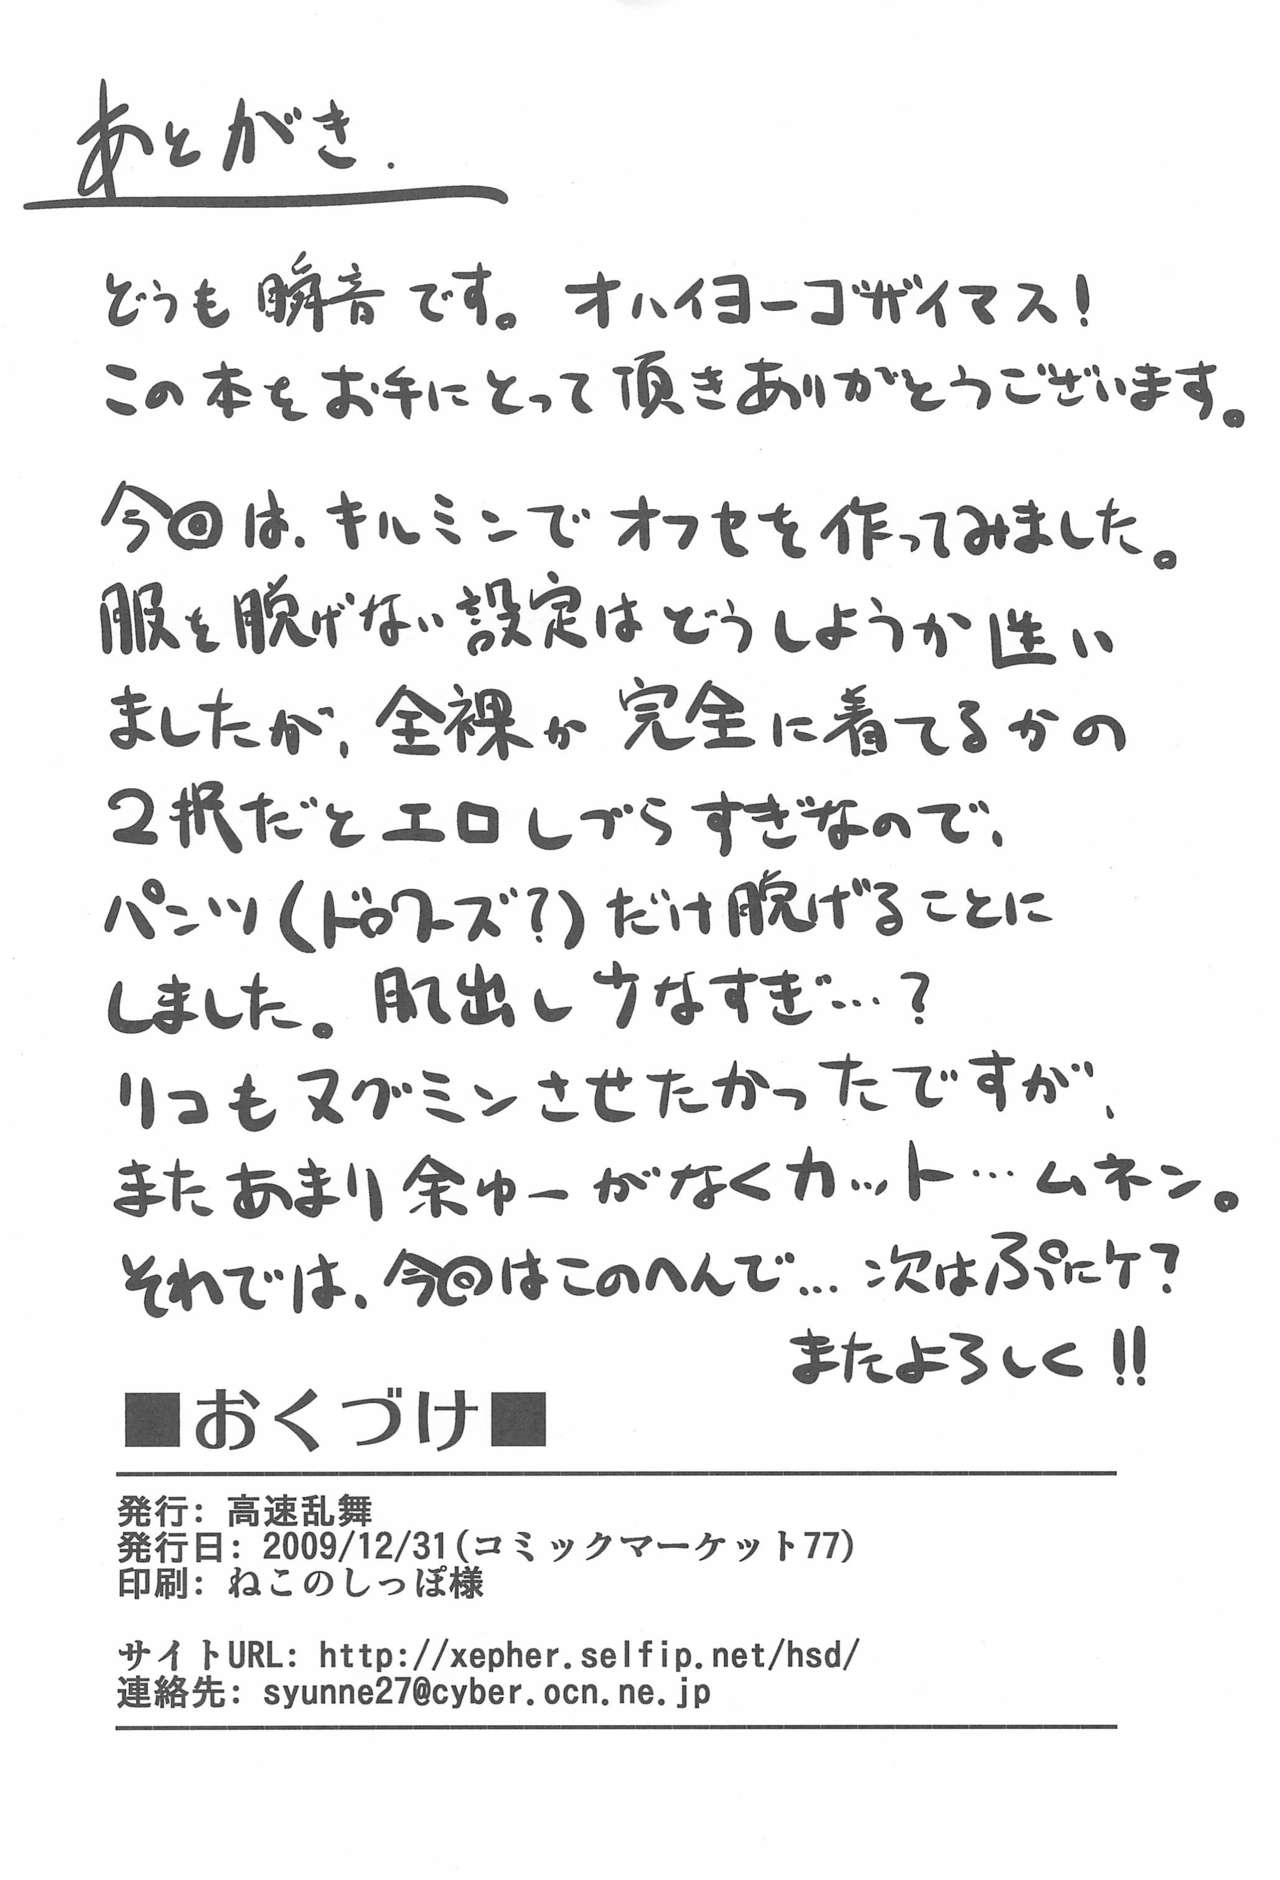 あとがき.
どうも瞬音です。オハイヨーゴザイマス!
この本をお手にとって頂きありがとうございます。
今回は、キルミンでオフセを作ってみました。
服を脱げない設定はどうしようか迷い
ましたが、全裸か完全に着てるかの
2択だとエロしづらすぎなので、
パンツ(ドロワーズ?)だけ脱げることに
しました。肌出し少なすぎ…?
リコもヌグミンさせたかったですが、
またあまり余ゆーがなくカット…ムネン。
それでは、今回はこのへんで…次はぷにケ?
またよろしく!!
■おくづけ■
発行: 高速乱舞
発行日: 2009/12/31(コミックマーケット77)
印刷: ねこのしっぽ様
サイトURL: http://xepher.selfip.net/hsd/
連絡先: syunne27@cyber.ocn.ne.jp